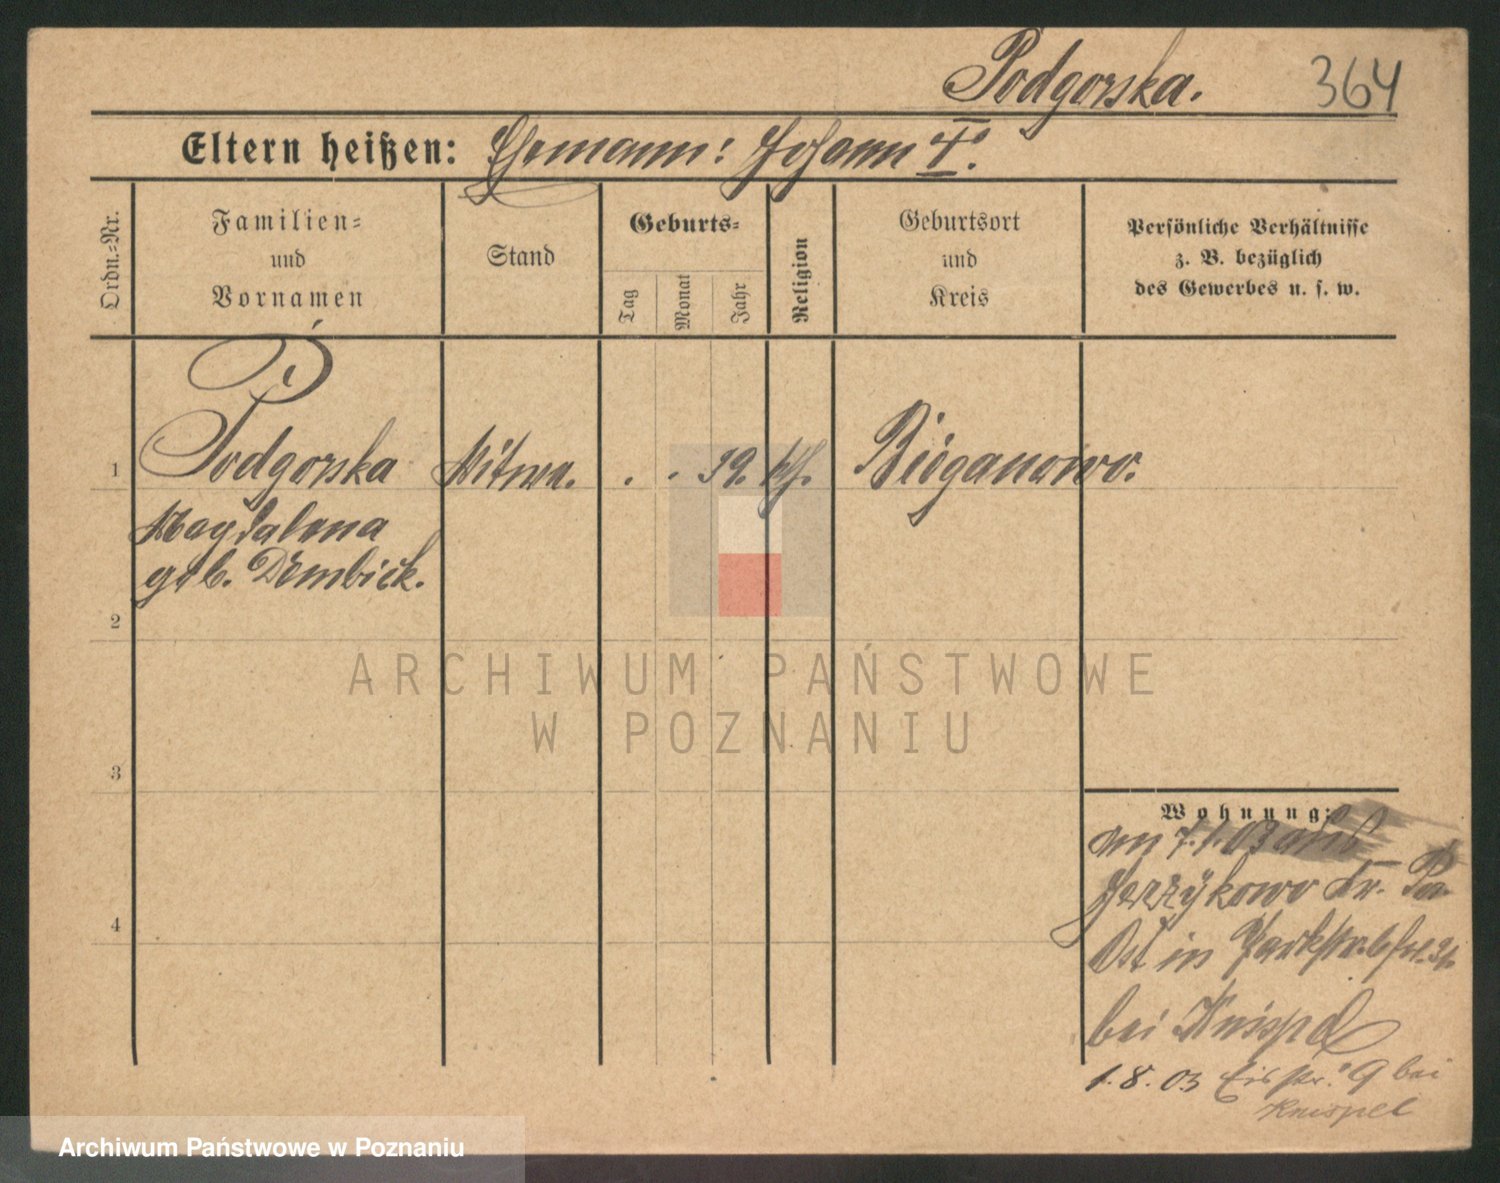 Podgorska. 364
Eltern heißen: Ehemann: Johann †.
Ordn.-Nr.
Familien-
und
Vornamen
Stand
Geburts-
Tag
Monat
Jahr
Religion
Geburtsort
und
Kreis
Persönliche Verhältnisse
z. B. bezüglich
des Gewerbes u. s. w.
1 Podgorska Witwe. . . 39. kth. Bieganowo.
Magdalena
geb. Dembick.
2
ARCHIWUM PAŃSTWOWE
W POZNANIU
3
Wohnung:
am 7.1.03 aus
Jerzykowo Kr.
4
Ost in
bei Knispel
1.8.03 9 bei
Knispel
Archiwum Państwowe w Poznaniu